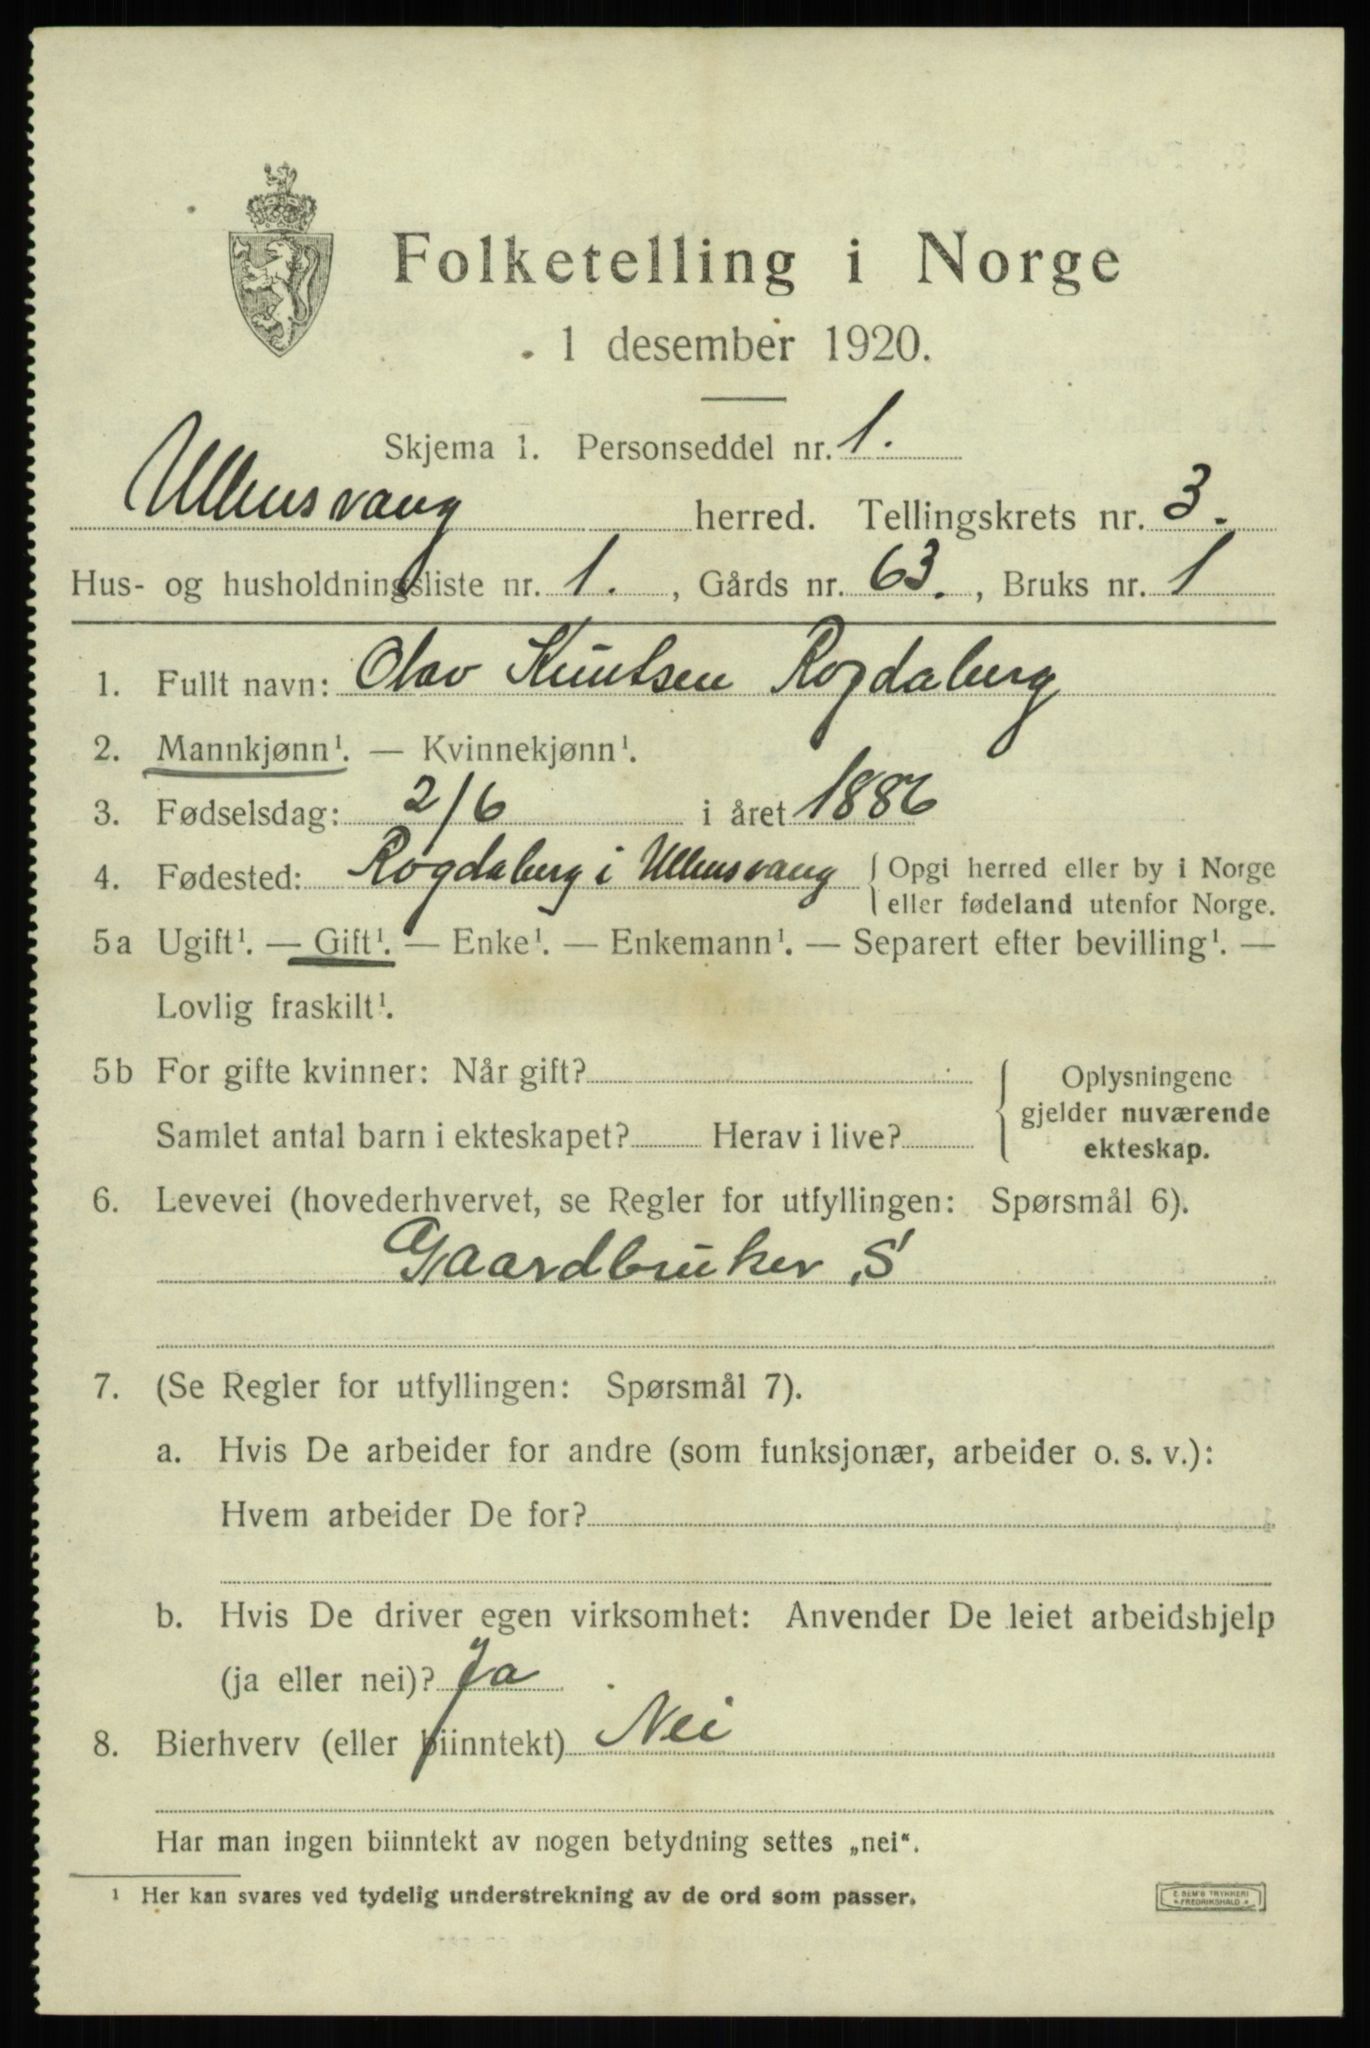 Folketelling i Norge
1 desember 1920.
Skjema 1. Personseddel nr. 1.
Ullensvang herred. Tellingskrets nr. 3.
Hus- og husholdningsliste nr. 1. , Gårds nr. 63. , Bruks nr. 1
1. Fullt navn: Olav Knutsen Rogdaberg
2. Mannkjønn¹. — Kvinnekjønn¹.
3. Fødselsdag: 2/6 i året 1886
4. Fødested: Rogdaberg i Ullensvang { Opgi herred eller by i Norge
eller fødeland utenfor Norge.
5a Ugift¹. — Gift¹. — Enke¹. — Enkemann¹. — Separert efter bevilling¹. —
Lovlig fraskilt¹.
5b For gifte kvinner: Når gift?
Samlet antal barn i ekteskapet? Herav i live?
Oplysningene
gjelder nuværende
ekteskap.
6. Levevei (hovederhvervet, se Regler for utfyllingen: Spørsmål 6).
Gaardbruker, S
7. (Se Regler for utfyllingen: Spørsmål 7).
a. Hvis De arbeider for andre (som funksjonær, arbeider o. s. v.):
Hvem arbeider De for?
b. Hvis De driver egen virksomhet: Anvender De leiet arbeidshjelp
(ja eller nei)? Ja
8. Bierhverv (eller biinntekt) Nei
Har man ingen biinntekt av nogen betydning settes „nei".
¹ Her kan svares ved tydelig understrekning av de ord som passer.
E. SEM'S TRYKKERI
FREDRIKSHALD